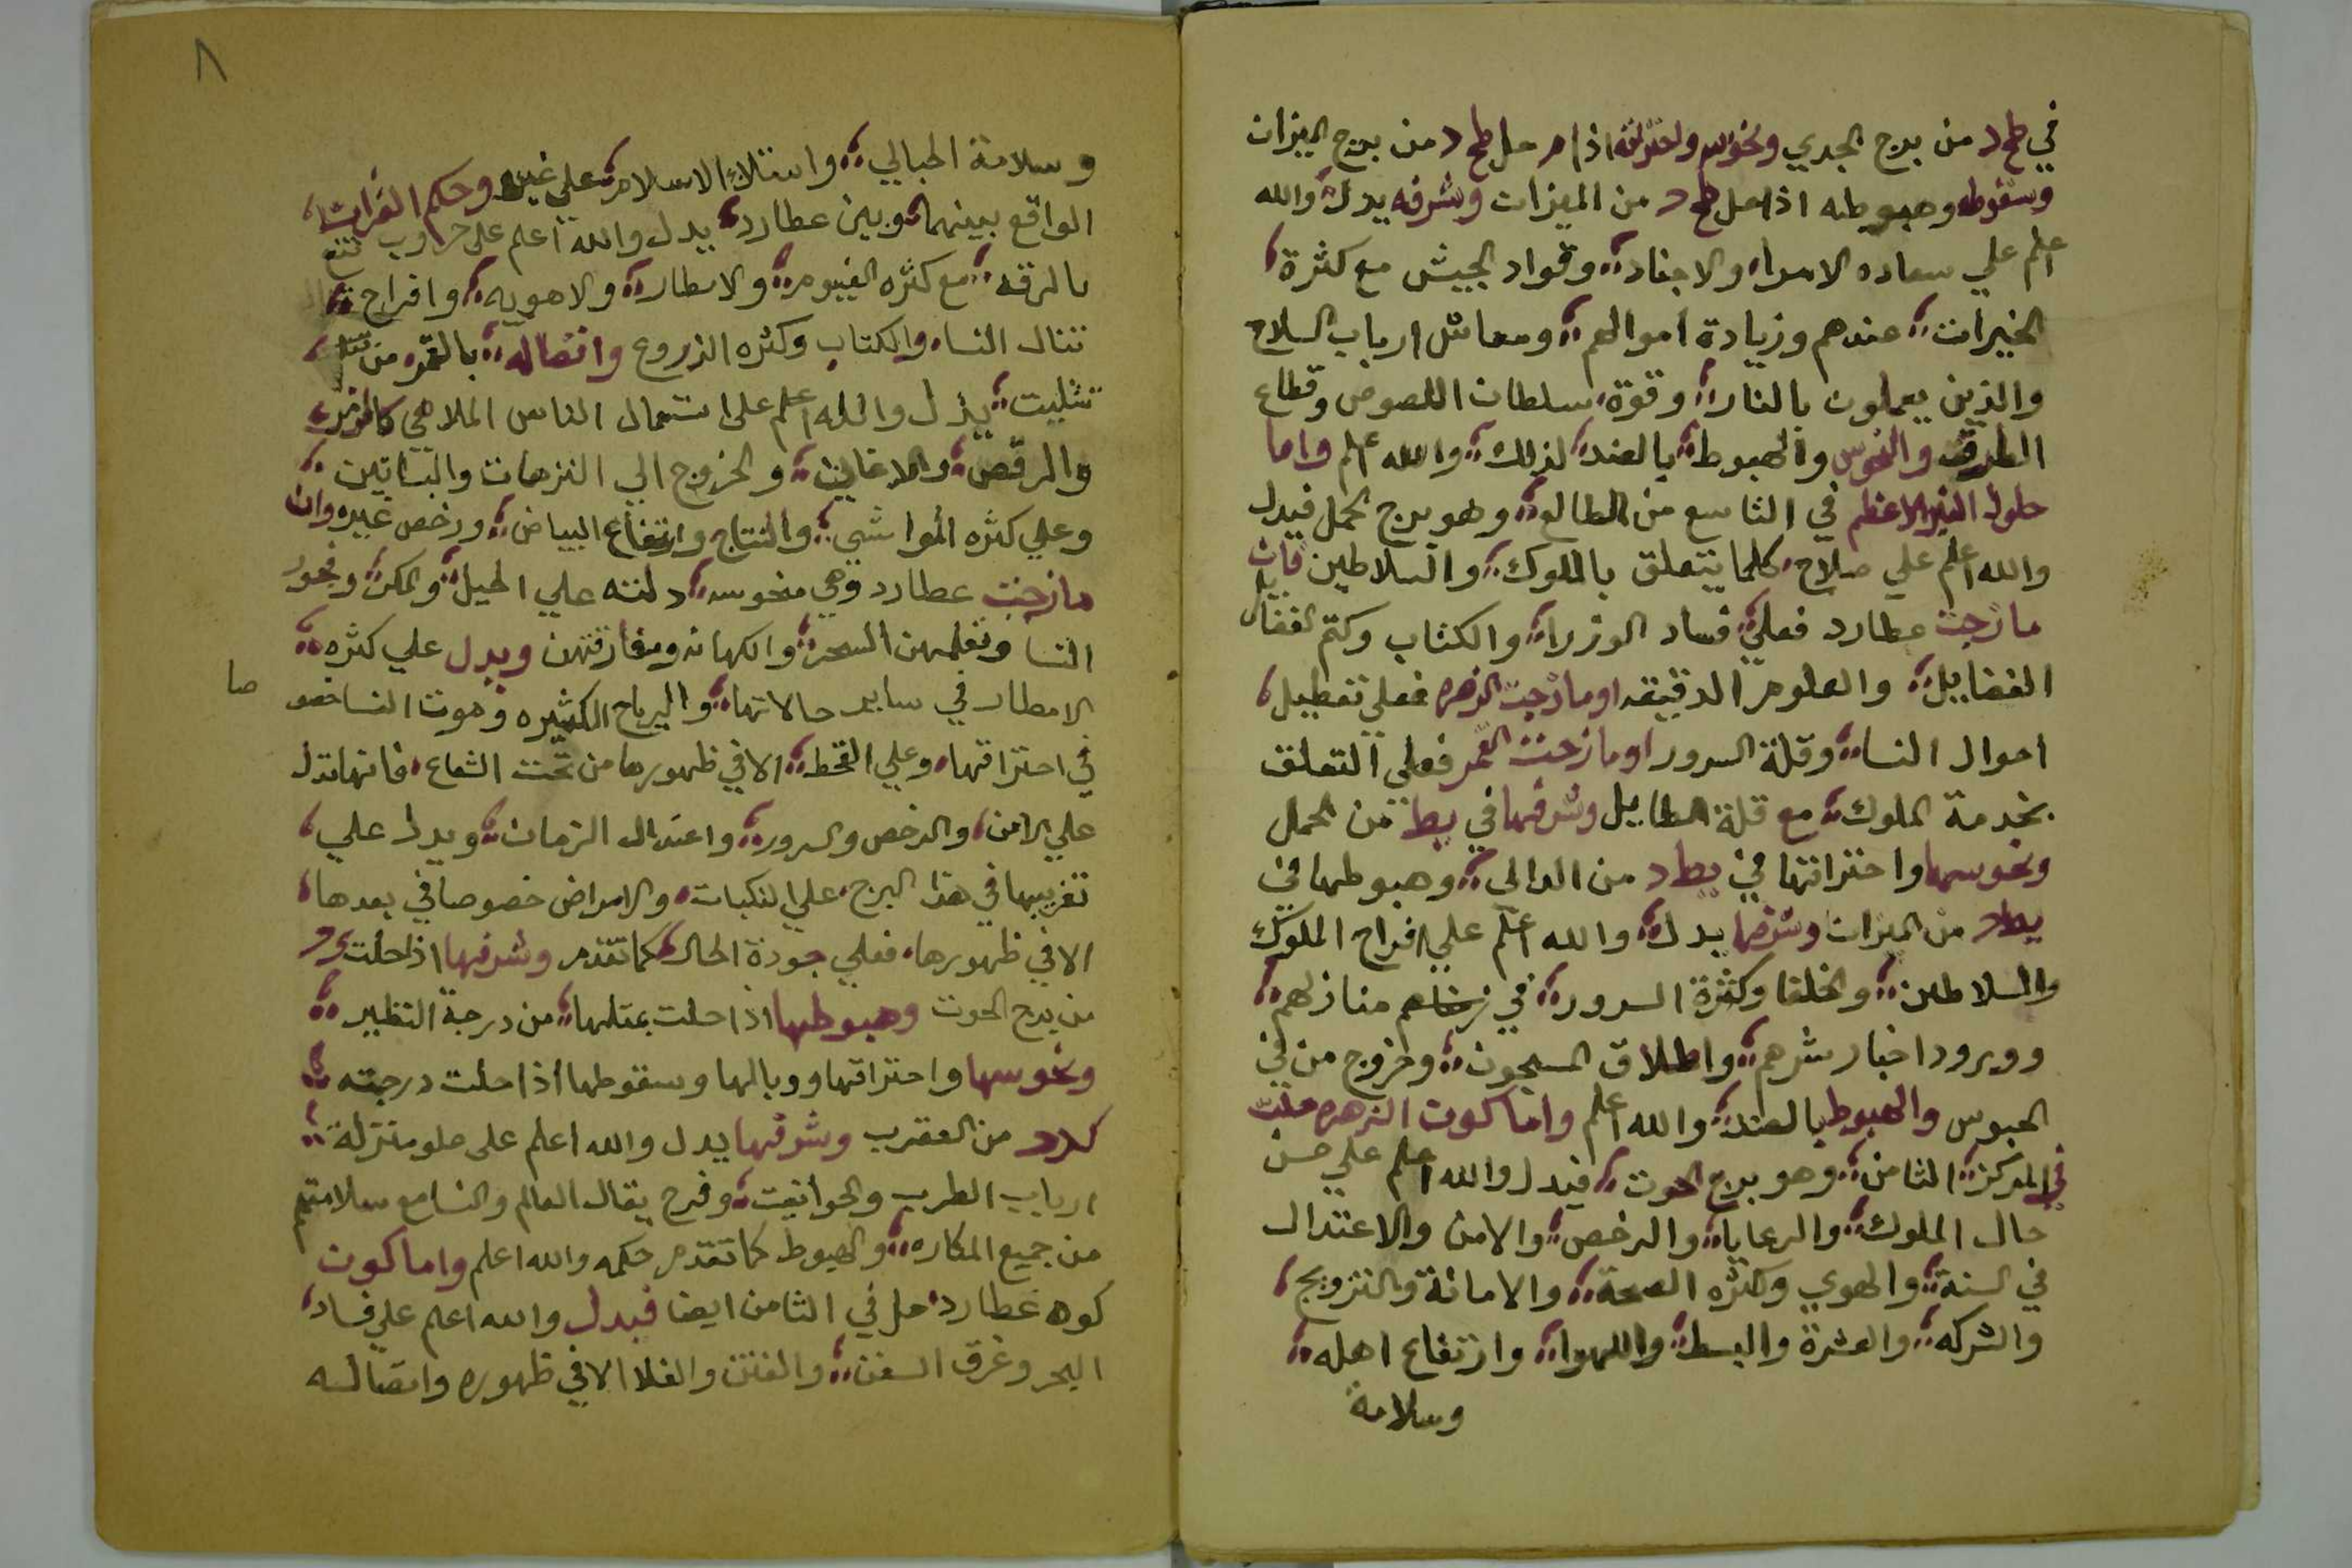 في كح د من برج الجدي ونحوسه واحتراقه اذا حل كح د من برج الميزان
وسقوطه وهبوطه اذا حل كح د من الميزان وشرفه يدل والله
اعلم علي سعاده الامرا والاجناد وقواد الجيش مع كثرة
الخيرات عندهم وزيادة اموالهم ومعاش ارباب السلاح
والذين يعملون بالنار وقوة سلطان اللصوص وقطاع
الطرق والنحوس والهبوط بالضد لذلك والله اعلم واما
حلول النير الاعظم في التاسع من الطالع وهو برج الحمل فيدل
والله اعلم علي صلاح كلما يتعلق بالملوك والسلاطين فان
مازجت عطارد فعلي فساد الوزرا والكتاب وكتم
الفضايل والعلوم الدقيقه او مازجت الزهره فعلي تعطيل
احوال النسا وقلة السرور او مازجت القمر فعلي التعلق
بخدمة الملوك مع قلة الطايل وشرفها في يط من الحمل
ونحوسها واحتراقها في يط د من الدالي وهبوطها في
يط د من الميزان وشرفها يدل والله اعلم علي افراح الملوك
والسلاطين والخلفا وكثرة السرور في منازلهم
وورود اخبار شرهم واطلاق المسجون وخروج من في
الحبوس والهبوط بالضد والله اعلم واما كون الزهره حلت
في المركز الثامن وهو برج الحوت فيدل والله اعلم علي حسن
حال الملوك والرعايا والرخص والامن والاعتدال
في السنة والهوي وكثره الصحة والامانة والتزويج
والشركه والعشرة والبسط واللهوا وارتفاع اهله
وسلامة
٨
وسلامة الحبالي وامتلاك الاسلام علي غيره وحكم القران
الواقع بينهما وبين عطارد يدل والله اعلم علي حروب تقع
بالرقه مع كثره الغيوم والامطار والاهويه وافراح
تنال النسا والكتاب وكثره الزروع واتصاله بالقمر من
تثليت يدل والله اعلم على استعمال الناس الملاهي
والرقص والاغاني والخروج الي النزهات والبساتين
وعلي كثره المواشي والنتاج وارتفاع البياض ورخص غيره وان
مازجت عطارد وهي منحوسه دلته علي الحيل والمكر وفجور
النسا وتعلمهن السحر والكهانه ومفارقتهن ويدل علي كثره
الامطار في ساير حالاتها والرياح الكثيره وموت النسا خصو
صا
في احتراقها وعلي القحط الا في ظهورها من تحت الشعاع فانها تدل
علي الامن والرخص والسرور واعتدال الزمان ويدل علي
تغريبها في هذا البرج علي النكبات والامراض خصوصا في بعدها
الا في ظهورها فعلي جودة الحال كما تقدم وشرفها اذا حلت
من برج الحوت وهبوطها اذا حلت بمثلها من درجة النظير
ونحوسها واحتراقها ووبالها وسقوطها اذا حلت درجته
من العقرب وشرفها يدل والله اعلم على علو منزلة
ارباب الطرب والحوانيت وفرح يقال العالم والنسا مع سلامتهم
من جميع المكاره والهبوط كما تقدم حكمه والله اعلم واما كون
كوه عطارد حل في الثامن ايضا فيدل والله اعلم علي فساد
البحر وغرق السفن والفتن والغلا الا في ظهوره واتصاله